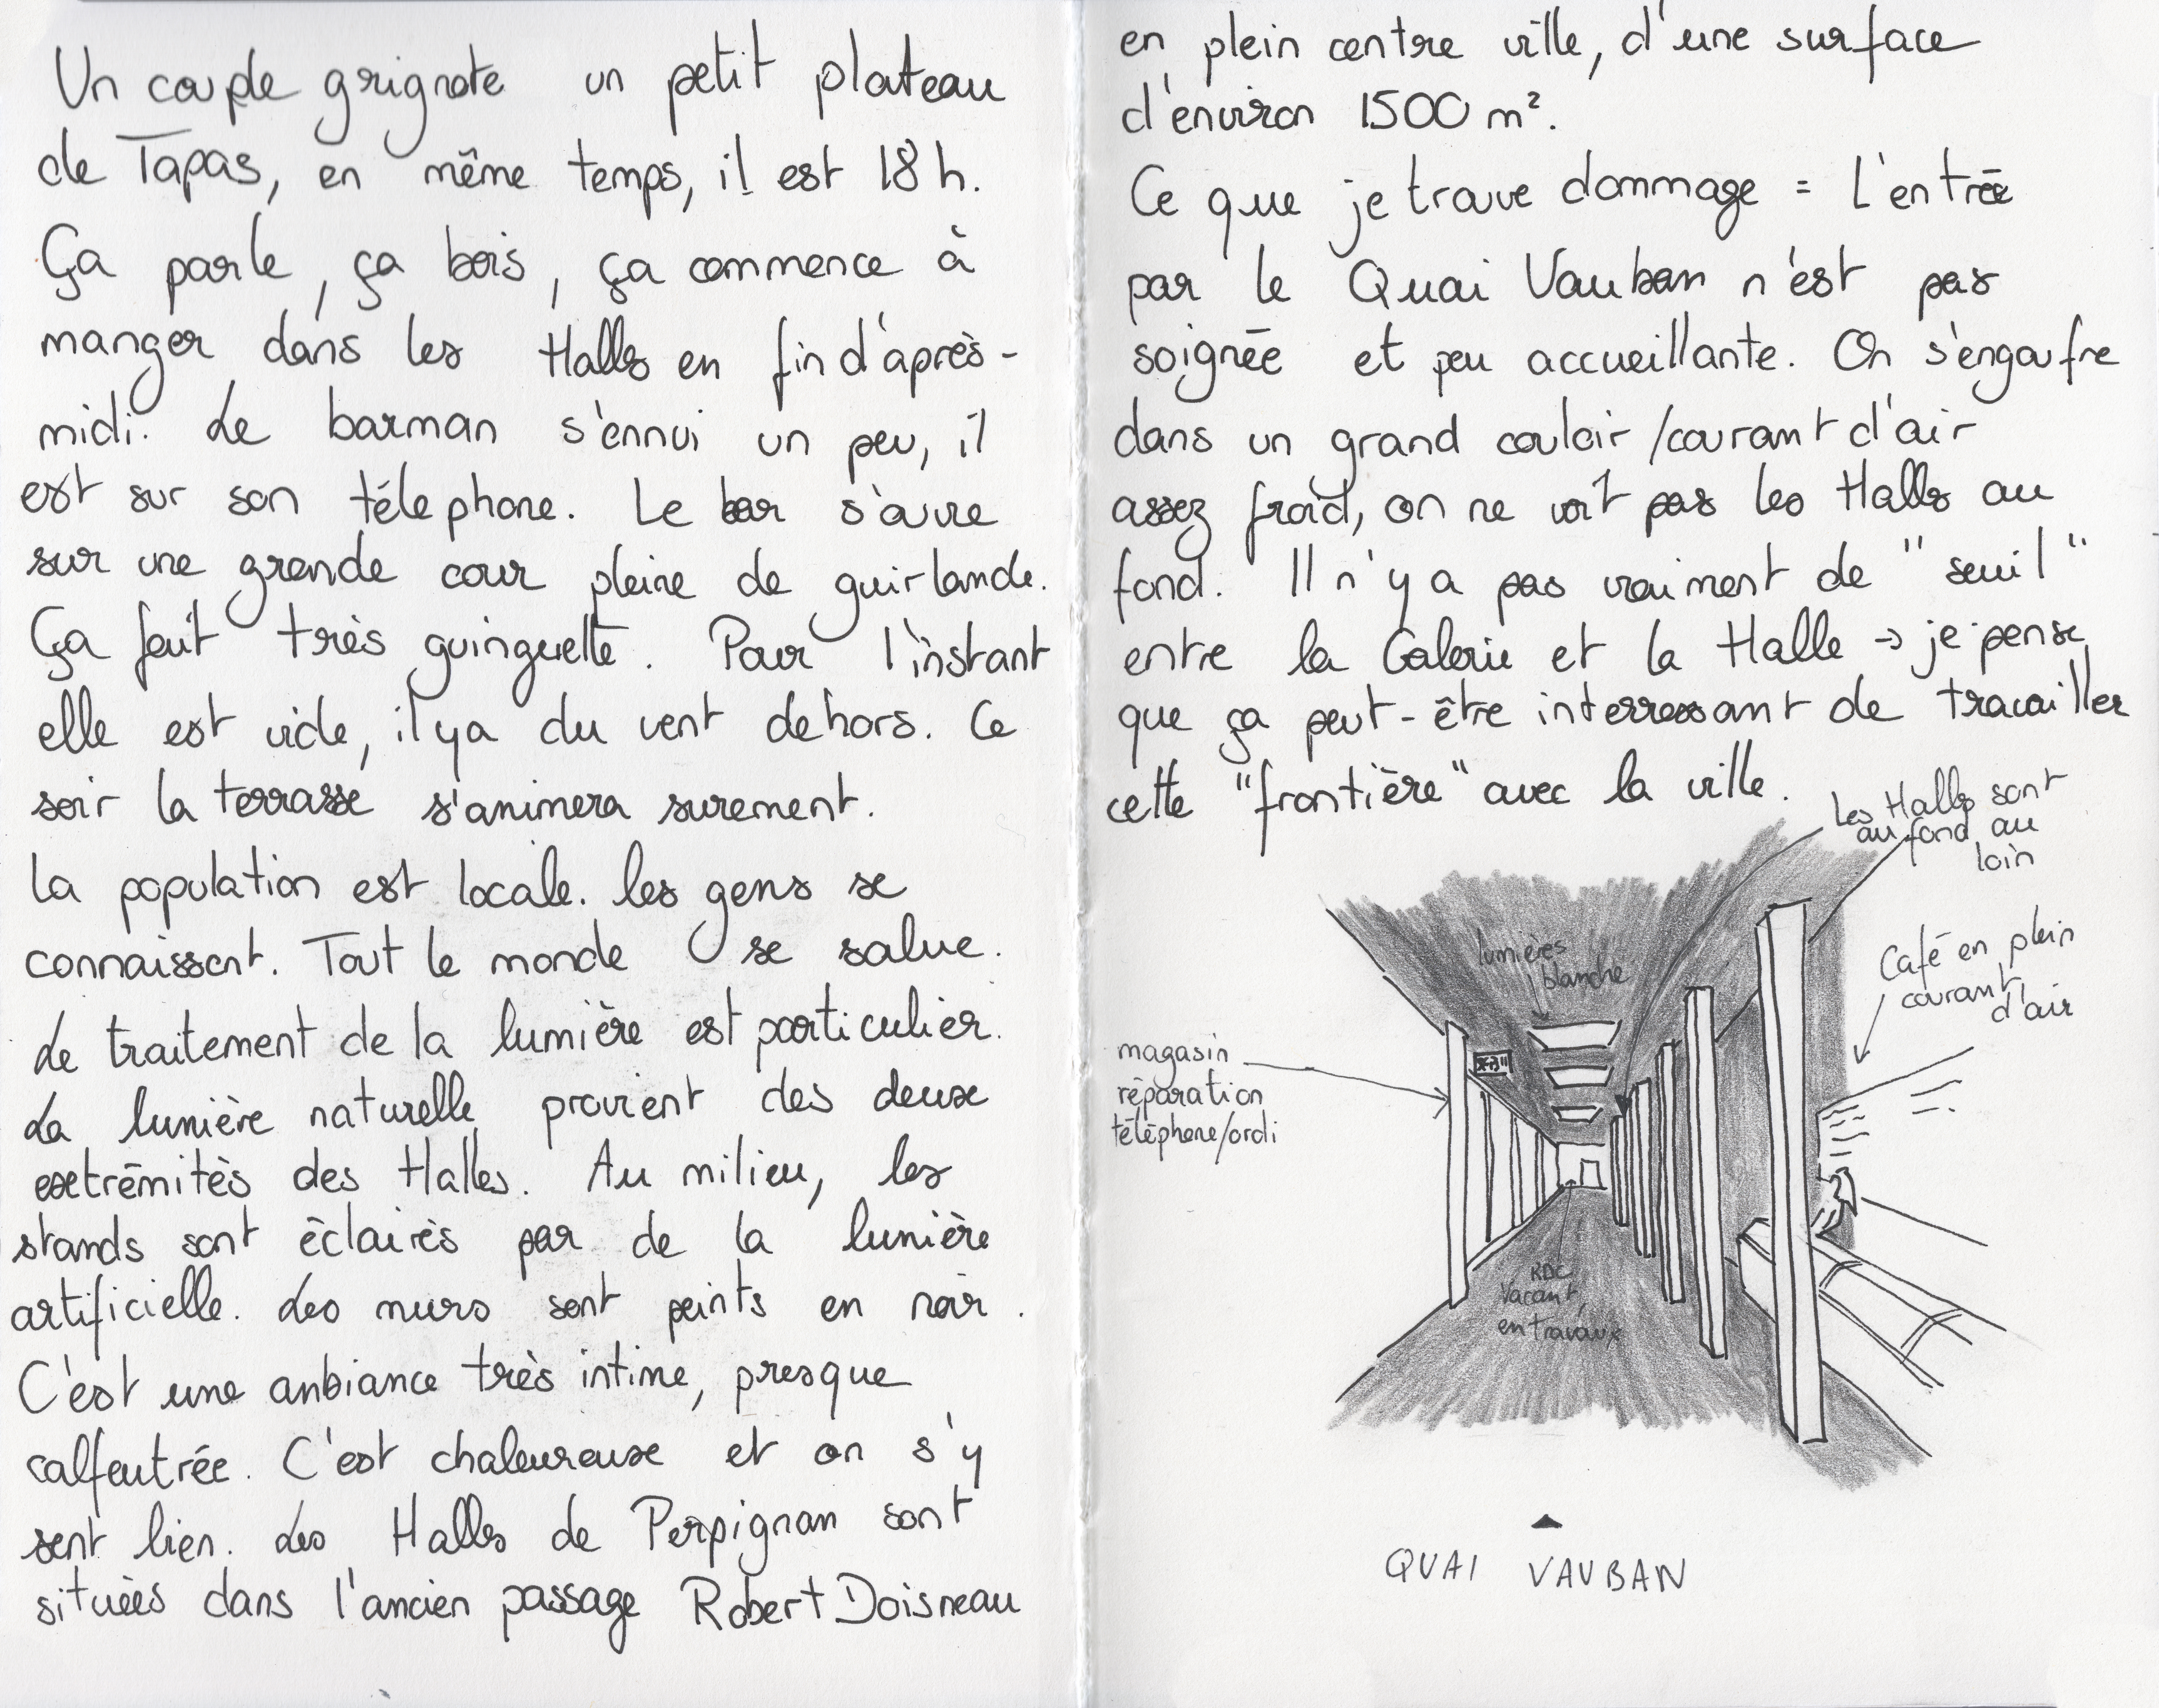 Un couple grignote un petit plateau
de Tapas, en même temps, il est 18h.
Ça parle, ça bois, ça commence à
manger dans les Halles en fin d'après-
midi. Le barman s'ennui un peu, il
est sur son téléphone. Le bar s'ouvre
sur une grande cour pleine de guirlande.
Ça fait très guinguette. Pour l'instant
elle est vide, il y a du vent dehors. Ce
soir la terrasse s'animera surement.
La population est locale. les gens se
connaissent. Tout le monde se salue.
Le traitement de la lumière est particulier.
La lumière naturelle provient des deux
extrémités des Halles. Au milieu, les
stands sont éclairés par de la lumière
artificielle. Les murs sont peints en noir.
C'est une anbiance très intime, presque
calfeutrée. C'est chaleureuse et on s'y
sent bien. Les Halles de Perpignan sont
situées dans l'ancien passage Robert Doisneau
en plein centre ville, d'une surface
d'environ 1500 m².
Ce que je trouve dommage = L'entrée
par le Quai Vauban n'est pas
soignée et peu accueillante. On s'engoufre
dans un grand couloir/courant d'air
assez froid, on ne voit pas les Halles au
fond. Il n'y a pas vraiment de "seuil"
entre la Galerie et la Halle → je pense
que ça peut-être interressant de travailler
cette "frontière" avec la ville.
Les Halles sont
au fond au
loin
lumières
blanche
Café en plein
courant
d'air
magasin
réparation
téléphone/ordi
RDC
Vacant,
en travaux
QUAI VAUBAN